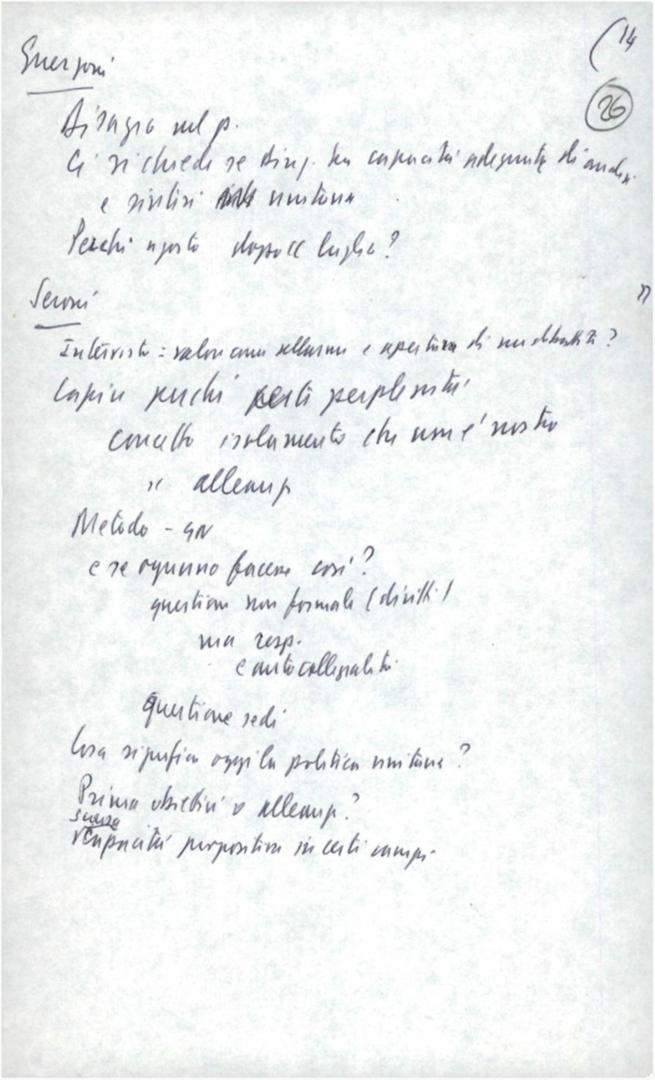 (14
26
Guerzoni
Disagio nel p.
Ci si chiede se dirig. ha capacità adeguate di analisi
e sintesi unitaria
Perché agosto dopo luglio?
Seroni
Intervista = valore allarme e apertura di un dibattito?
Capire perché certi perplessità
concetto isolamento che non è nostro
" alleanze
Metodo - GN
e se ognuno facesse così?
questione non formale (diritti)
ma resp.
e anticollegialità
questione sedi
Cosa significa oggi la politica unitaria?
Prima obiettivi o alleanze?
scarsa
capacità propositiva in certi campi.